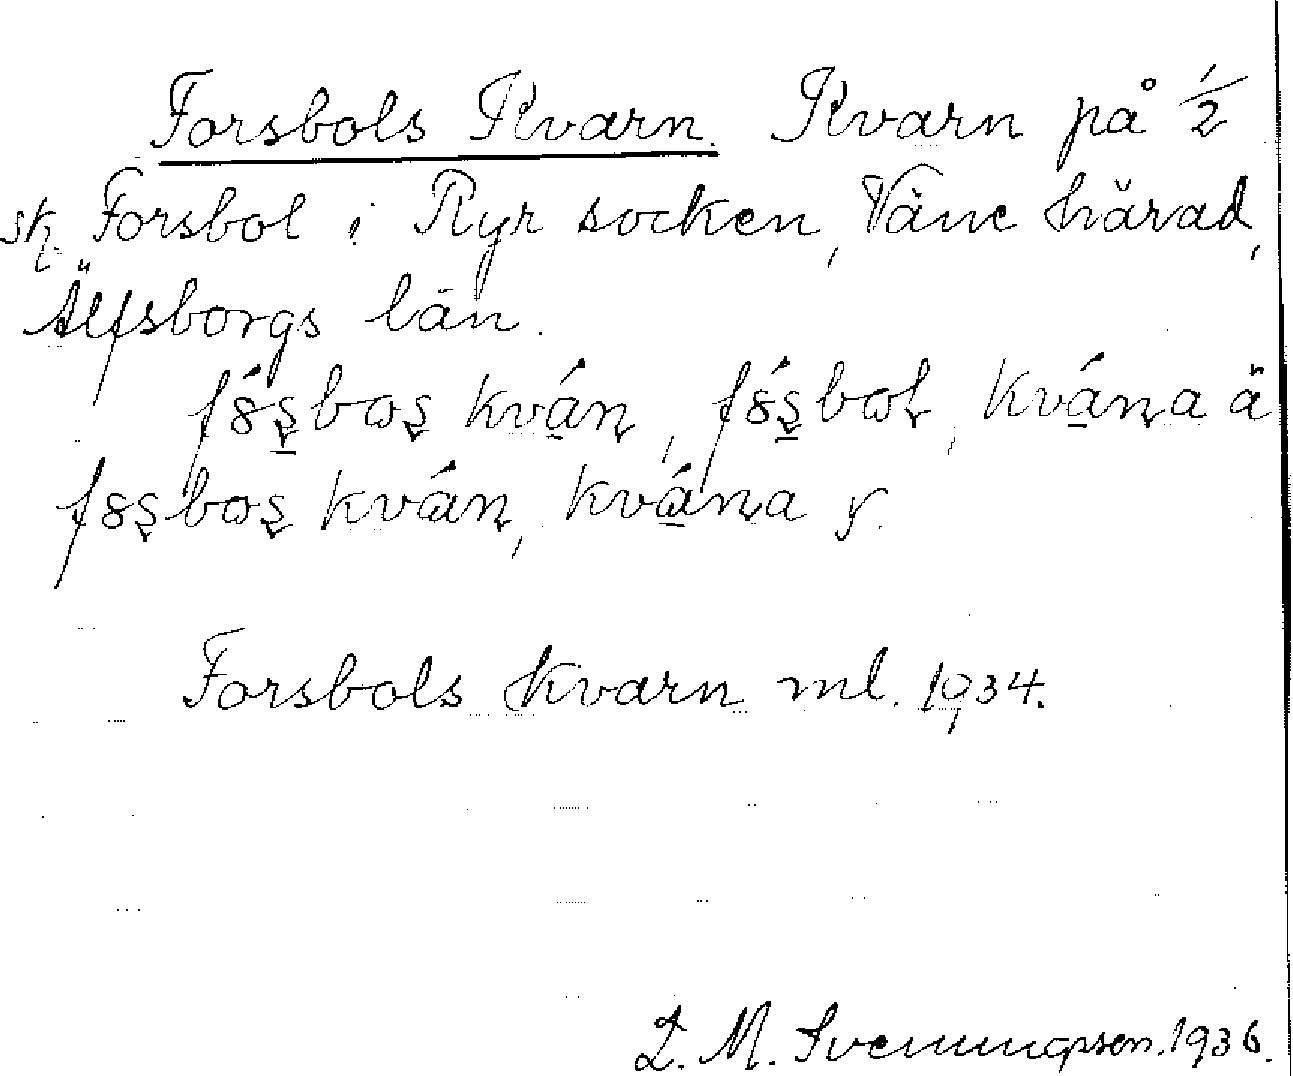 Forsbols Kvarn. Kvarn på 1/2
sk. Forsbol i Ryr socken, Väne härad,
Älfsborgs län.
kván, kvána ä
kván, kvána
Forsbols Kvarn ml. 1934.
L. M. Svenungsson. 1936.